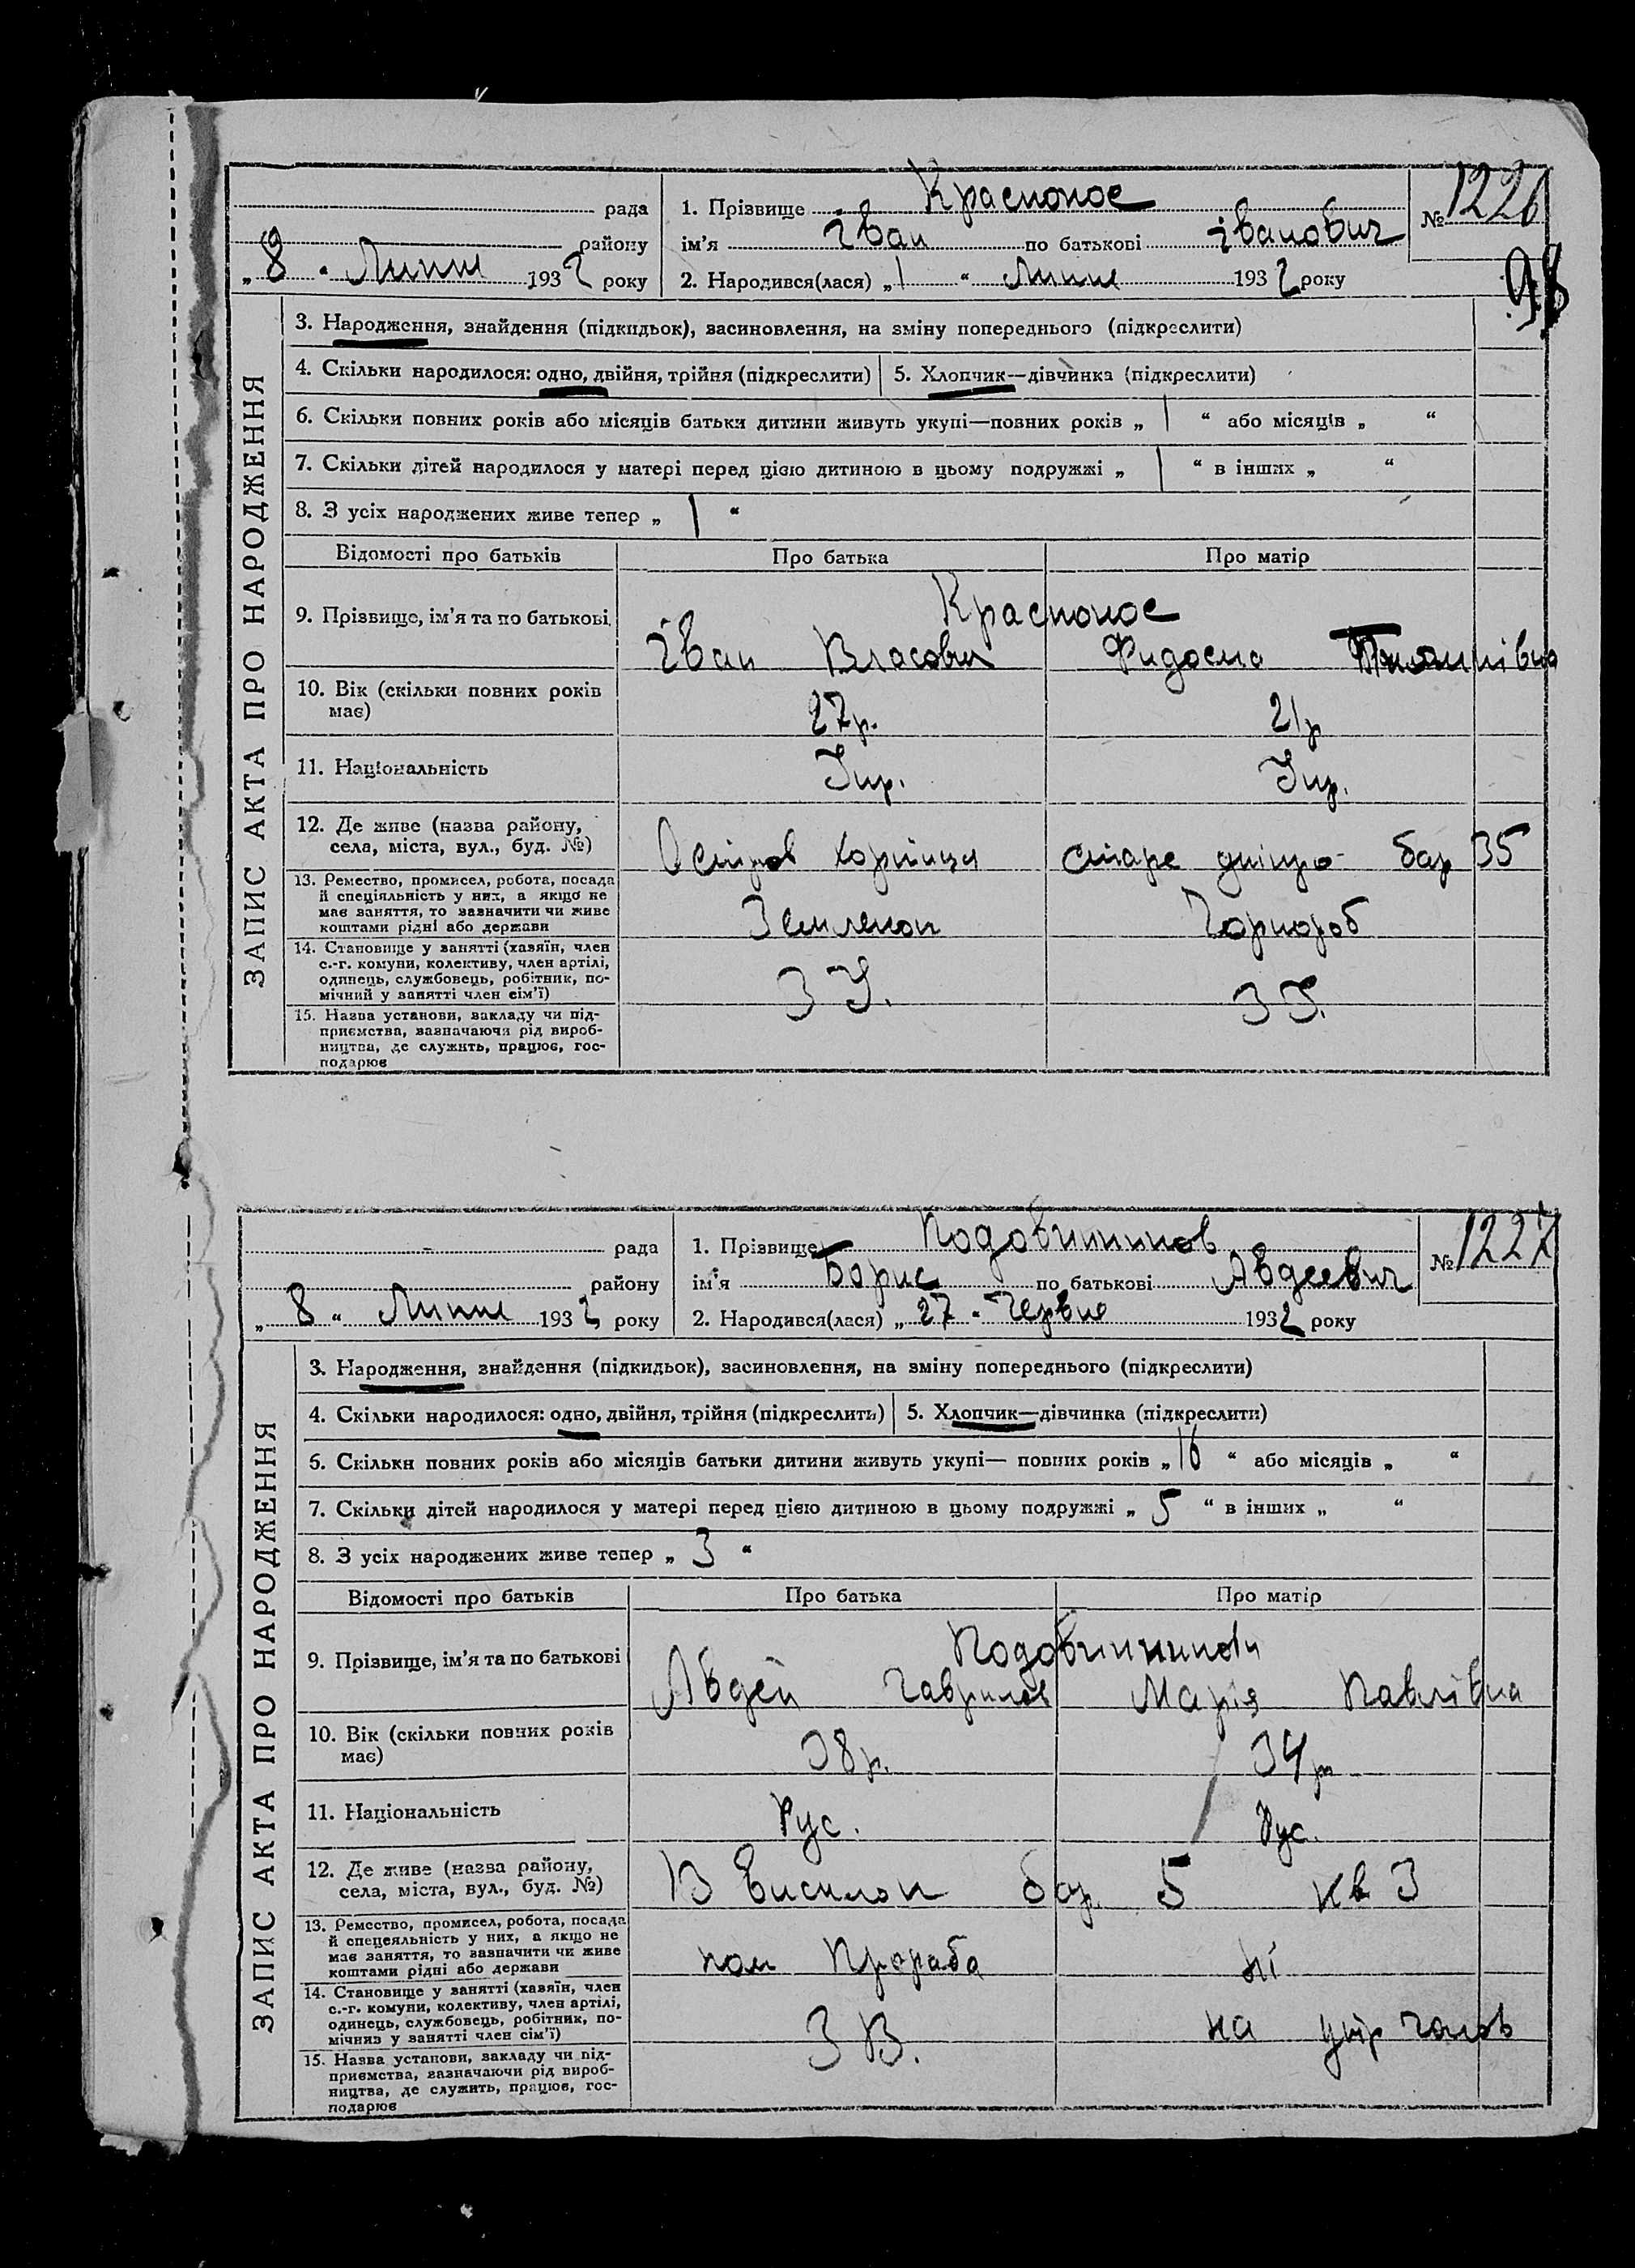 рада
району
„ 8 “ Липня 1932 року
1. Прізвище Краснонос
ім'я Іван по батькові Іванович
2. Народився(лася) „ 1 “ Липня 1932 року
№ 1226
98
ЗАПИС АКТА ПРО НАРОДЖЕННЯ
3. Народження, знайдення (підкидьок), засиновлення, на зміну попереднього (підкреслити)
4. Скільки народилося: одно, двійня, трійня (підкреслити) 5. Хлопчик—дівчинка (підкреслити)
6. Скільки повних років або місяців батьки дитини живуть укупі—повних років „ 1 “ або місяців „ “
7. Скільки дітей народилося у матері перед цією дитиною в цьому подружжі „ 1 “ в інших „ “
8. З усіх народжених живе тепер „ 1 “
Відомості про батьків Про батька Про матір
9. Прізвище, ім'я та по батькові
Краснонос
Іван Власович
10. Вік (скільки повних років
має)
27р. 21р
11. Національність
Укр. Укр.
12. Де живе (назва району,
села, міста, вул., буд. №)
Остров Хортиця старе дніпро- бар 35
13. Ремество, промисел, робота, посада
й спеціяльність у них, а якщо не
має заняття, то зазначити чи живе
коштами рідні або держави
Землекоп Чорнороб
14. Становище у занятті (хазяїн, член
с.-г. комуни, колективу, член артілі,
одинець, службовець, робітник, по-
мічний у занятті член сім'ї)
15. Назва установи, закладу чи під-
приємства, зазначаючи рід вироб-
ництва, де служить, працює, гос-
подарює
рада
району
„ 8 “ Липня 1932 року
1. Прізвище
ім'я Борис по батькові Авдеевич
2. Народився(лася) „ 27 “ Червня 1932 року
№ 1227
ЗАПИС АКТА ПРО НАРОДЖЕННЯ
3. Народження, знайдення (підкидьок), засиновлення, на зміну попереднього (підкреслити)
4. Скільки народилося: одно, двійня, трійня (підкреслить) 5. Хлопчик—дівчинка (підкреслити)
6. Скільки повних років або місяців батьки дитини живуть укупі— повних років „ 16 “ або місяців „ “
7. Скільки дітей народилося у матері перед цією дитиною в цьому подружжі „ 5 “ в інших „ “
8. З усіх народжених живе тепер „ 3 “
Відомості про батьків Про батька Про матір
9. Прізвище, ім'я та по батькові
Авдей Гаврилов Марія Павлівна
10. Вік (скільки повних років
має)
38р. 34р
11. Національність
Рус. Рус.
12. Де живе (назва району,
села, міста, вул., буд. №)
бар. 5 кв 3
13. Ремество, промисел, робота, посада
й спецеяльність у них, а якщо не
має заняття, то зазначити чи живе
коштами рідні або держави
пом Прораба ні
14. Становище у занятті (хазяїн, член
с.-г. комуни, колективу, член артілі,
одинець, службовець, робітник, по-
мічниз у занятті член сім'ї)
З В. на утр чолов
15. Назва установи, закладу чи під-
приємства, зазначаючи рід вироб-
ництва, де служить, працює, гос-
подарює